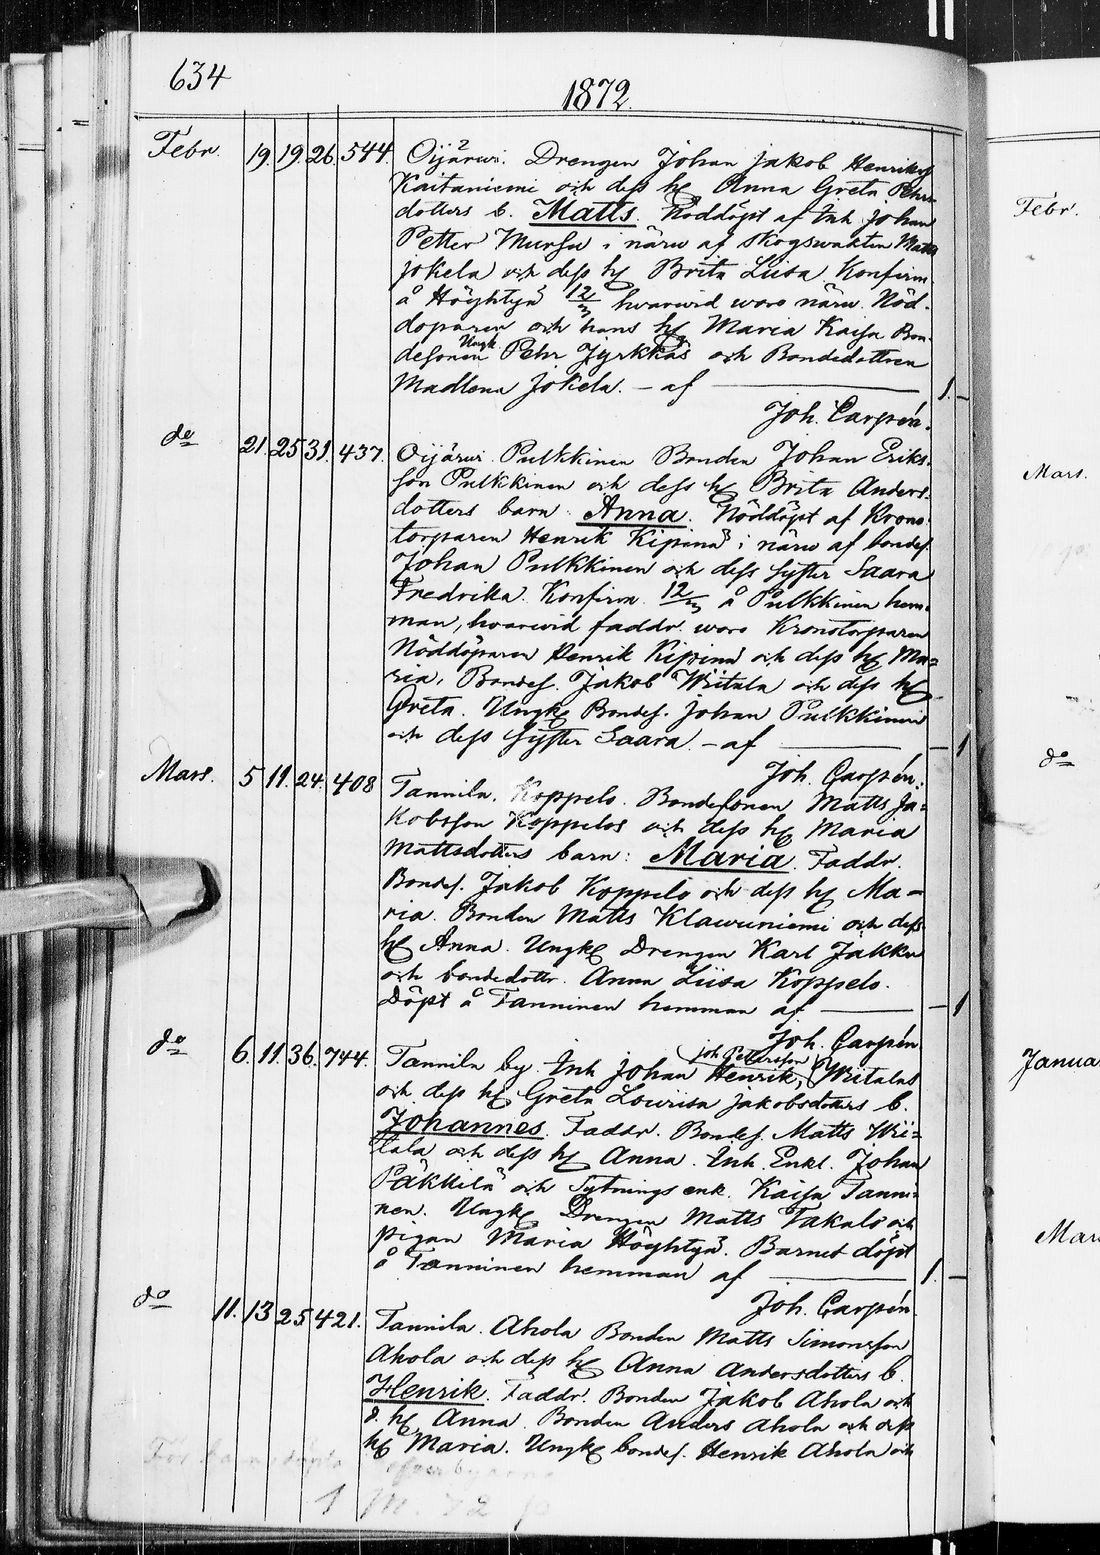 634
1872.
Febr. 19. 19. 26. 544. Oijärwi. Drengen Johan Jakob Henriks
Kaitaniemi och dess h. Anna Greta Pehrs-
dotters b. Matts. Nöddöpt af Inh. Johan
Petter Mursu i närw. af skogswakten Matts
Jokela och dess h. Brita Liisa. Konfirm.
å Höyhtyä 12/3 hvarwid woro närw. Nöd-
döparen och hans h. Maria Kaisa Bon-
desonen Ungk. Pehr Jyrkkäs och Bondedottren
Madlena Jokela. – af 1. –
Joh. Carpén.
do 21. 25 31. 437. Oijärwi. Pulkkinen Bonden Johan Eriks-
son Pulkkinen och dess h. Brita Anders-
dotters barn: Anna. Nöddöpt af Krono-
torparen Henrik Kipinä i närw. af bondes.
Johan Pulkkinen och dess syster Saara
Fredrika. Konfirm. 12/3 å Pulkkinen hem-
man, hvarwid faddr. woro Kronotorparen
Nöddöparen Henrik Kipinä och dess h. Ma-
ria, Bondes. Jakob Wiitala och dess h.
Greta. Ungk. Bondes. Johan Pulkkinen
och dess syster Saara. – af – 1
Joh. Carpén.
Mars. 5 11. 24. 408 Tannila. Koppelo. Bondesonen Matts Ja-
kobsson Koppelos och dess h. Maria
Mattsdotters barn: Maria. Faddr.
Bondes. Jakob Koppelo och dess h. Ma-
ria. Bonden Matts Klawuniemi och dess
h. Anna. Ungk. Drengen Karl Jakku
och bondedottr. Anna Liisa Koppelo.
Döpt å Tanninen hemman af – 1
Joh. Carpén
do 6. 11. 36. 744. Tannila by. Inh. Johan Henrik, Joh. Pettersson Wiitalas
och dess h. Greta Lowiisa Jakobsdotters b.
Johannes. Faddr. Bondes. Matts Wii-
tala och dess h. Anna. Inh. Enkl. Johan
Päkkilä och Sytningsenk. Kaisa Tanni-
nen. Ungk. Drengen Matts Takalo och
pigan Maria Höyhtyä. Barnet döpt
å Tanninen hemman af 1. –
Joh. Carpén
do 11. 13 25 421. Tannila. Ahola Bonden Matts Simonsson
Ahola och dess h. Anna Andersdotters b.
Henrik. Faddr. Bonden Jakob Ahola och
d. h. Anna. Bonden Anders Ahola och dess
h. Maria. Ungk. bondes. Henrik Ahola och
För barn döpta
1 m. 72 p
Febr.
Mars.
do
Janua
Mars